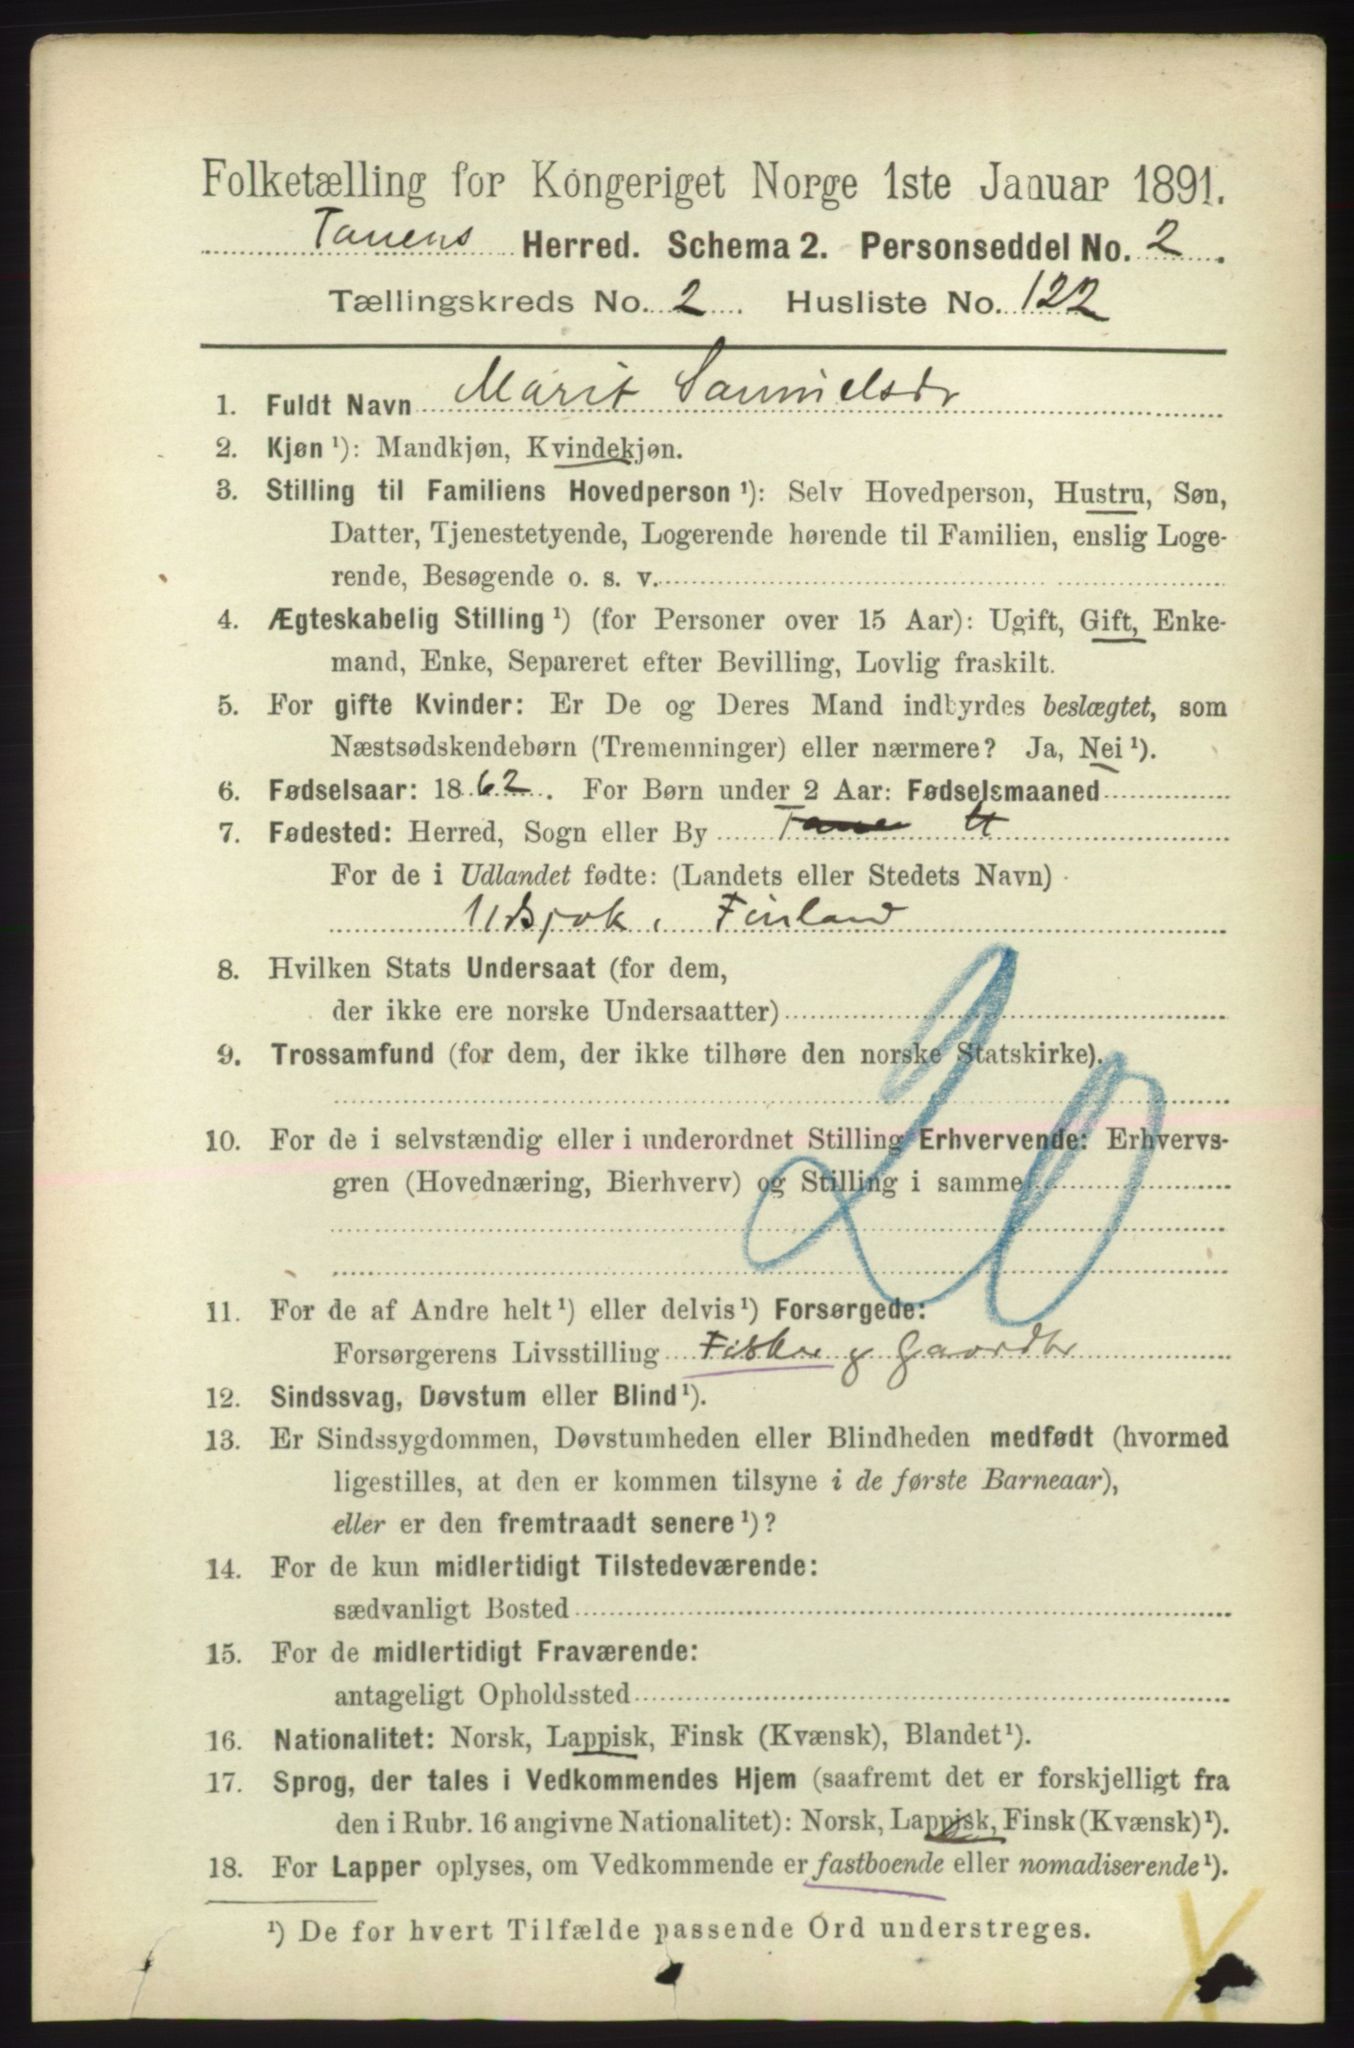 Folketælling for Kongeriget Norge 1ste Januar 1891.
Tanens Herred. Schema 2. Personseddel No. 2.
Tællingskreds No. 2. Husliste No. 122
1. Fuldt Navn Marit Samuelsdr
2. Kjøn ¹): Mandkjøn, Kvindekjøn.
3. Stilling til Familiens Hovedperson ¹): Selv Hovedperson, Hustru, Søn,
Datter, Tjenestetyende, Logerende hørende til Familien, enslig Loge-
rende, Besøgende o. s. v.
4. Ægteskabelig Stilling ¹) (for Personer over 15 Aar): Ugift, Gift, Enke-
mand, Enke, Separeret efter Bevilling, Lovlig fraskilt.
5. For gifte Kvinder: Er De og Deres Mand indbyrdes beslægtet, som
Næstsødskendebørn (Tremenninger) eller nærmere? Ja, Nei ¹).
6. Fødselsaar: 1862. For Børn under 2 Aar: Fødselsmaaned
7. Fødested: Herred, Sogn eller By Tanen U
For de i Udlandet fødte: (Landets eller Stedets Navn)
Utsjok, Finland
8. Hvilken Stats Undersaat (for dem,
der ikke ere norske Undersaatter)
9. Trossamfund (for dem, der ikke tilhøre den norske Statskirke).
20
10. For de i selvstændig eller i underordnet Stilling Erhvervende: Erhvervs-
gren (Hovednæring, Bierhverv) og Stilling i samme
11. For de af Andre helt ¹) eller delvis ¹) Forsørgede:
Forsørgerens Livsstilling Fisker g Gaardbr
12. Sindssvag, Døvstum eller Blind ¹).
13. Er Sindssygdommen, Døvstumheden eller Blindheden medfødt (hvormed
ligestilles, at den er kommen tilsyne i de første Barneaar),
eller er den fremtraadt senere ¹)?
14. For de kun midlertidigt Tilstedeværende:
sædvanligt Bosted
15. For de midlertidigt Fraværende:
antageligt Opholdssted
16. Nationalitet: Norsk, Lappisk, Finsk (Kvænsk), Blandet ¹).
17. Sprog, der tales i Vedkommendes Hjem (saafremt det er forskjelligt fra
den i Rubr. 16 angivne Nationalitet): Norsk, Lappisk, Finsk (Kvænsk) ¹).
18. For Lapper oplyses, om Vedkommende er fastboende eller nomadiserende ¹).
¹) De for hvert Tilfælde passende Ord understreges.